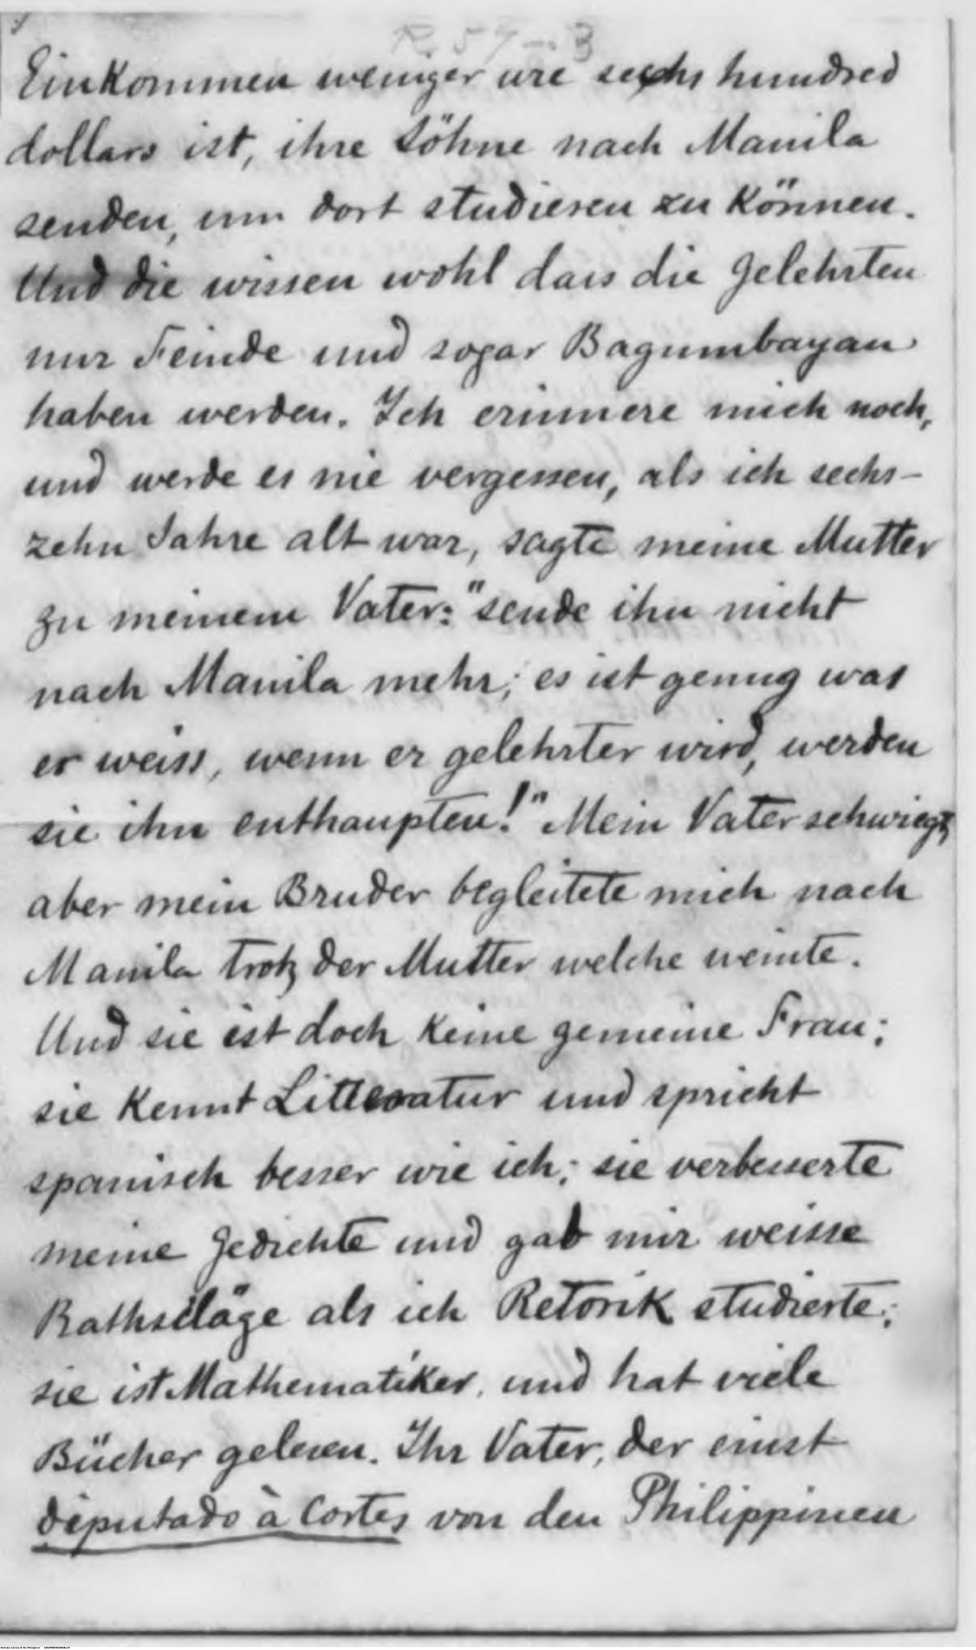 Einkommen weniger wie sechs hundred
dollars ist, ihre Söhne nach Manila
senden, um dort studieren zu können.
Und die wissen wohl dass die Gelehrten
nur Feinde und sogar Bagumbayan
haben werden. Ich erinnere mich noch,
und werde es nie vergessen, als ich sechs-
zehn Jahre alt war, sagte meine Mutter
zu meinem Vater: "sende ihn nicht
nach Manila mehr; es ist genug was
er weiss, wenn er gelehrter wird, werden
sie ihn enthaupten!" Mein Vater schwiegt,
aber mein Bruder begleitete mich nach
Manila trotz der Mutter welche weinte.
Und sie ist doch keine gemeine Frau;
sie kennt Litteratur und spricht
spanisch besser wie ich; sie verbesserte
meine Gedichte und gab mir weisse
Rathsläge als ich Retorik studierte;
sie ist Mathematiker, und hat viele
Bücher gelesen. Ihr Vater, der einst
diputado à Cortes von den Philippinen